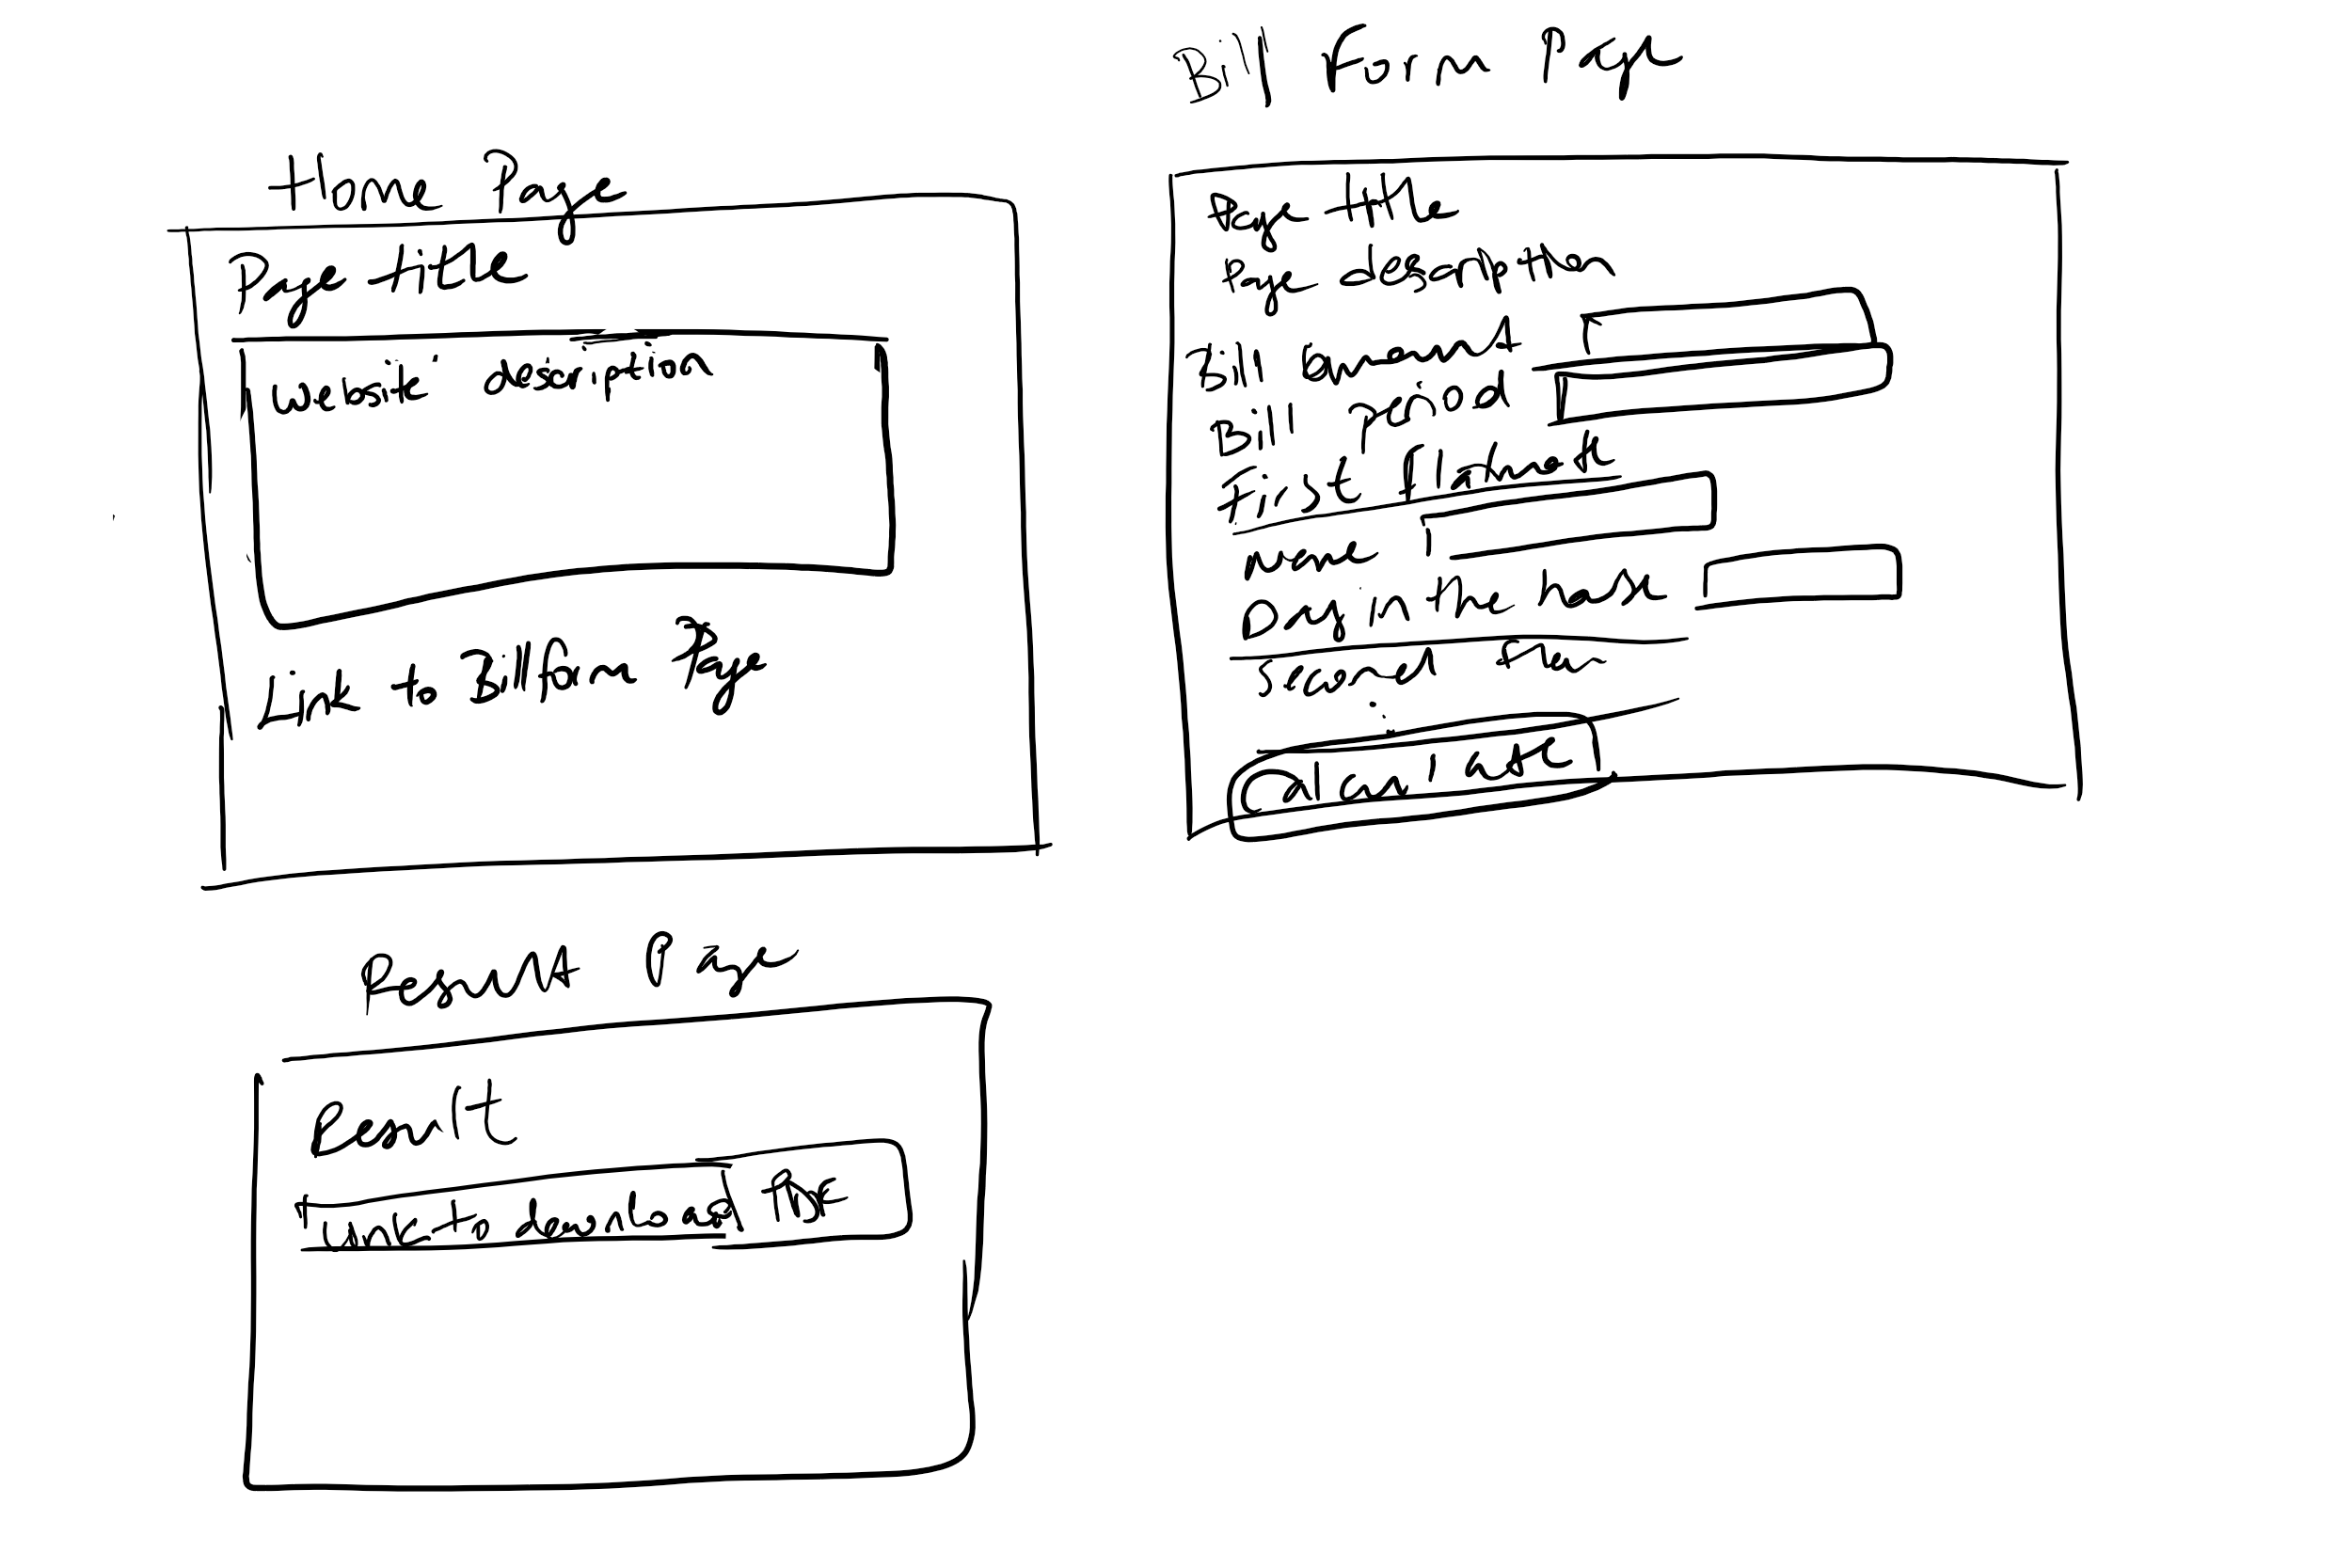 Home Page
Page title
website description
Link to Billform Page
Bill Form Page
Page title
Page description
Bill amount
Bill period
First flatmate
name
Days in the house
Second flat
Calculate
Result Page
Result
Link to download PDF